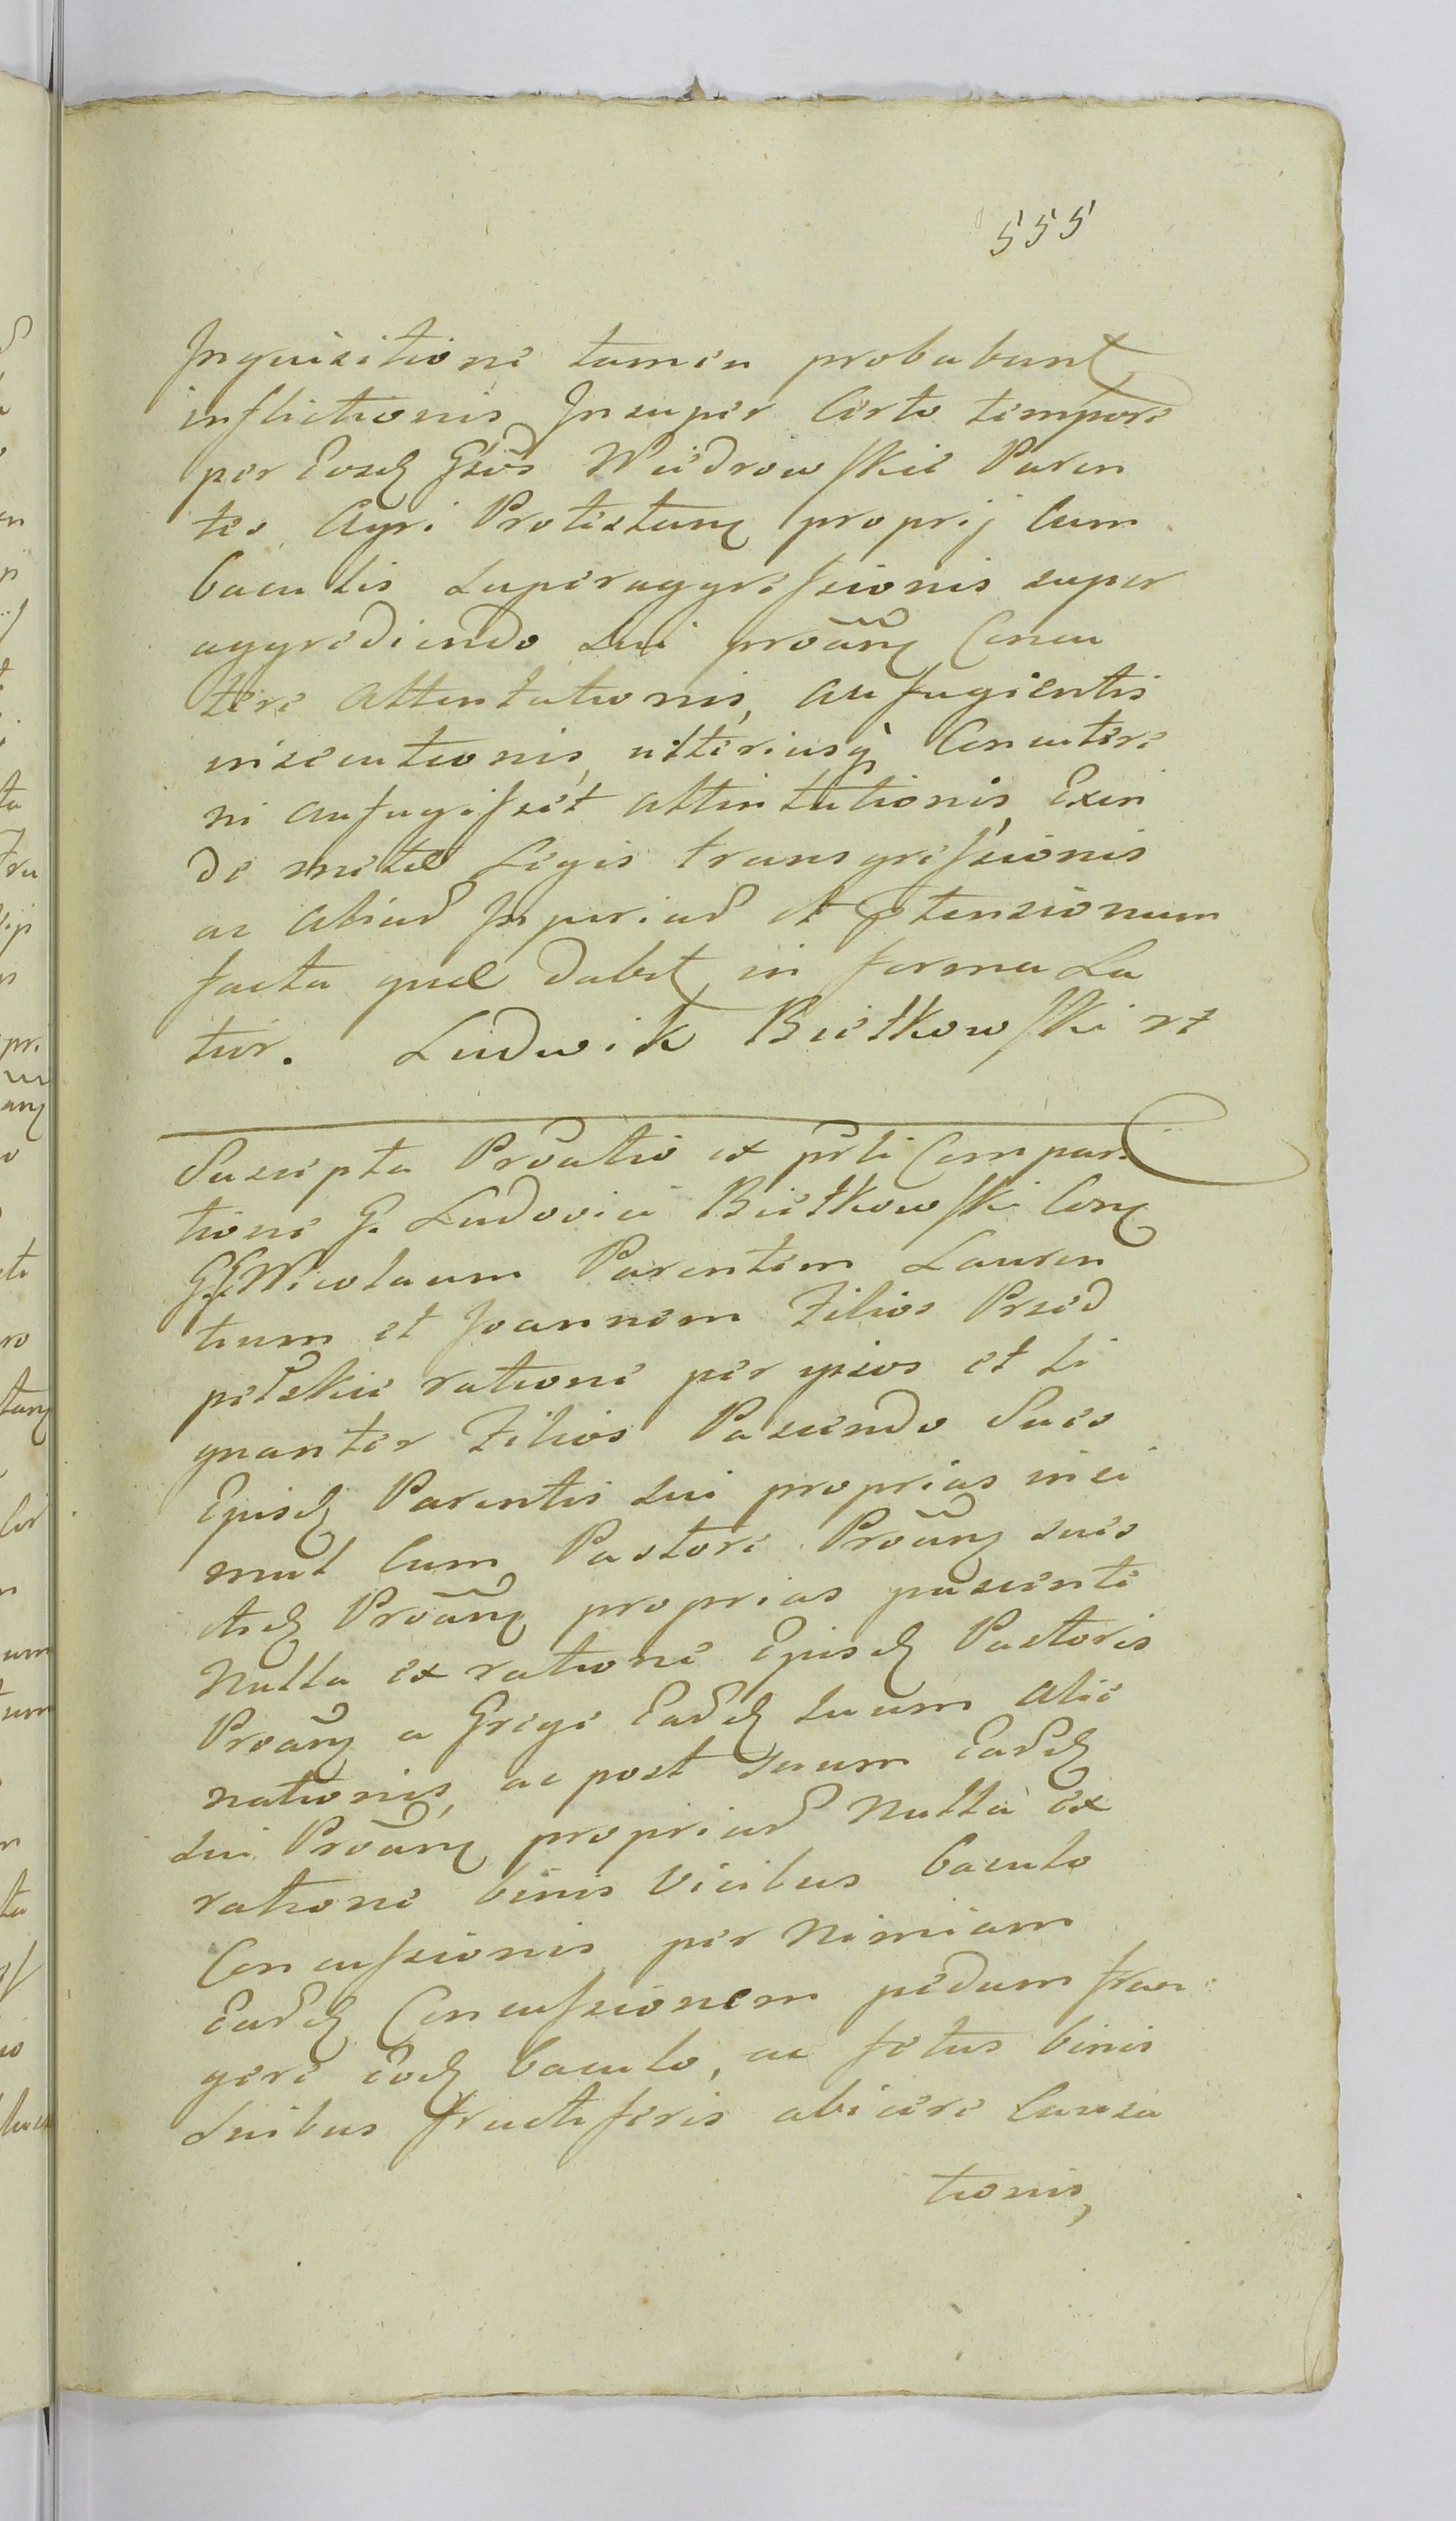 555
Inquisitione tamen probabunt
inflictionis Insuper Certo tempore
per Eosd Gsōs Wiedrowskie Paren
tes, Agri Protestan proprij cum
baculis superaggressionis super
aggrediendo sui proān Concu
tere attentationis, aufugientis
insecutionis, ulteriusq Concutere
ni aufugisset attentationis, Exin
de mētae Legis transgressionis
ac aliad Injuriad et ptensionum
facta quae dabit in forma La
tior. Ludwik Biełkowski rt
Suscepta Proātio ex prēti Compari
tione G. Ludovici Biełkowski Con
GG Nicolaum Parentem Lauren
tium et Joannem Filios Przed
pełskie ratione per ipsos et si
gnanter Filios Pascendo Sues
Ejusd Parentis sui proprias insi
mul cum Pastore Proān sues
itid Proān proprias pascente
Nulla ex ratione Ejusd Pastoris
Proān a Grege Eadd suum alie
nationis, ac post suum Eadd
sui Proān propriad Nulla ex
ratione binis vicibus baculo
Concussionis per Nimiam
Eadd Concussionem pedum fran
gere eod baculo, ac fetus binis
suibus fructiferis abicere Causa
tionis,